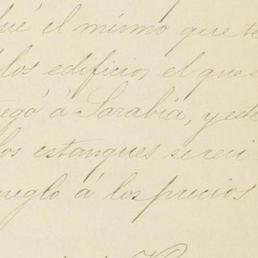 ué el mismo que te
los edificios el que
egó á Sarabia, y este
os estanques se reci
reglo á los precios